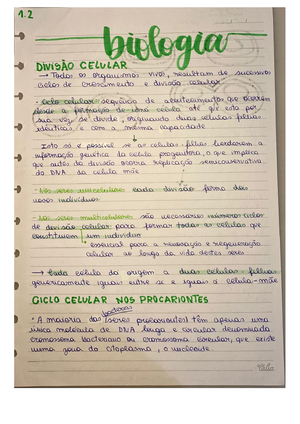 1.2
biologia
DIVISÃO CELULAR
→ Todos os organismos vivos, resultam de sucessivos
ciclos de crescimento e divisão celular.
• Ciclo celular - sequência de acontecimentos que ocorrem
desde a formação de uma célula até que esta por
sua vez, se divide, originando duas células filhas
idênticas e com a mesma capacidade
↓
Isto só é possível se as células filhas herdarem a
informação genética da célula progenitora, o que implica
que antes da divisão ocorra replicação semiconservativa
do DNA da célula mãe
• Nos seres unicelulares: cada divisão forma dois
novos indivíduos.
• Nos seres multicelulares: são necessários inúmeros ciclos
de divisão celular para formar todas as células que
constituem um indivíduo
↳ essencial para a renovação e regeneração
celular ao longo da vida destes seres
→ toda célula dá origem a duas células-filhas
geneticamente iguais entre si e iguais à célula-mãe
CICLO CELULAR NOS PROCARIONTES
• A maioria das bactérias (seres procariontes) têm apenas uma
única molécula de DNA longa e circular denominada
cromossoma bacteriano ou cromossoma circular, que existe
numa zona do citoplasma, o nucleoide.